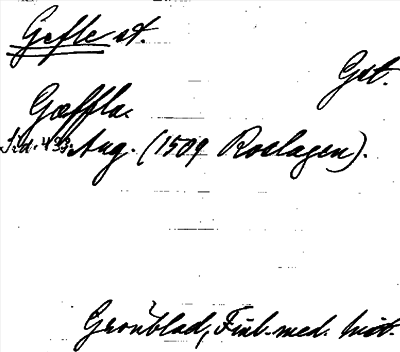 Gefle st.
Gst.
Gæffla.
Sid. 433. Aug. (1509 Roslagen).
Grönblad, Finl. med. hist.